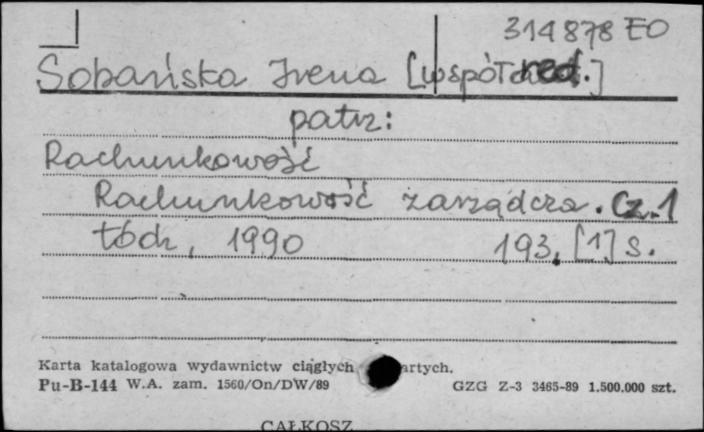 314878 EO
Sobańska Irena [współred.]
patrz:
Rachunkowość
Rachunkowość zarządcza. Cz. 1
Łódź, 1990 193, [1] s.
Karta katalogowa wydawnictw ciągłych artych.
Pu-B-144 W.A. zam. 1560/On/DW/89 GZG Z-3 3465-89 1.500.000 szt.
CAŁKOSZ